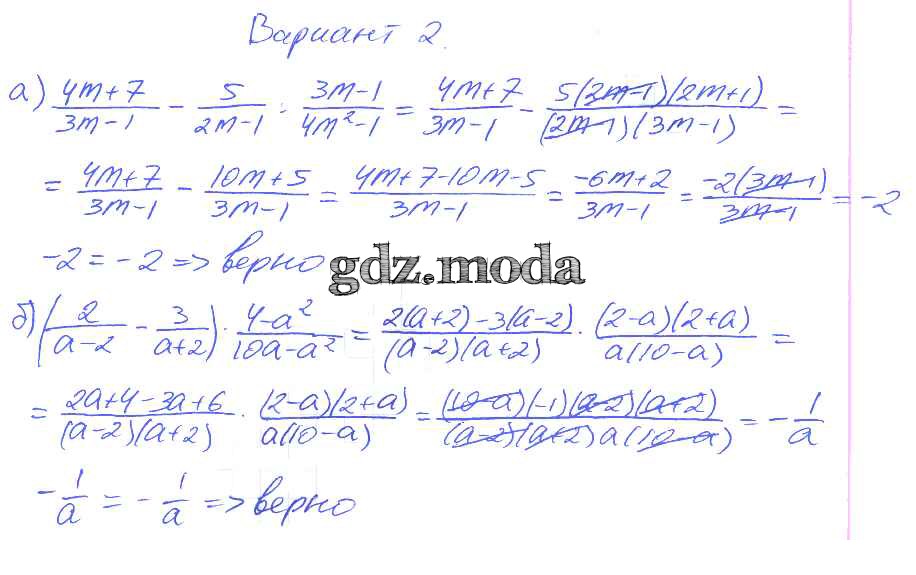 Вариант 2.
а) (4m+7)/(3m-1) - 5/(2m-1) : (3m-1)/(4m²-1) = (4m+7)/(3m-1) - (5(2m-1)(2m+1))/((2m-1)(3m-1)) =
= (4m+7)/(3m-1) - (10m+5)/(3m-1) = (4m+7-10m-5)/(3m-1) = (-6m+2)/(3m-1) = (-2(3m-1))/(3m-1) = -2
-2 = -2 => верно
gdz.moda
б) (2/(a-2) - 3/(a+2)) · (4-a²)/(10a-a²) = (2(a+2)-3(a-2))/((a-2)(a+2)) · ((2-a)(2+a))/(a(10-a)) =
= (2a+4-3a+6)/((a-2)(a+2)) · ((2-a)(2+a))/(a(10-a)) = ((10-a)(-1)(a-2)(a+2))/((a-2)(a+2)a(10-a)) = -1/a
-1/a = -1/a => верно